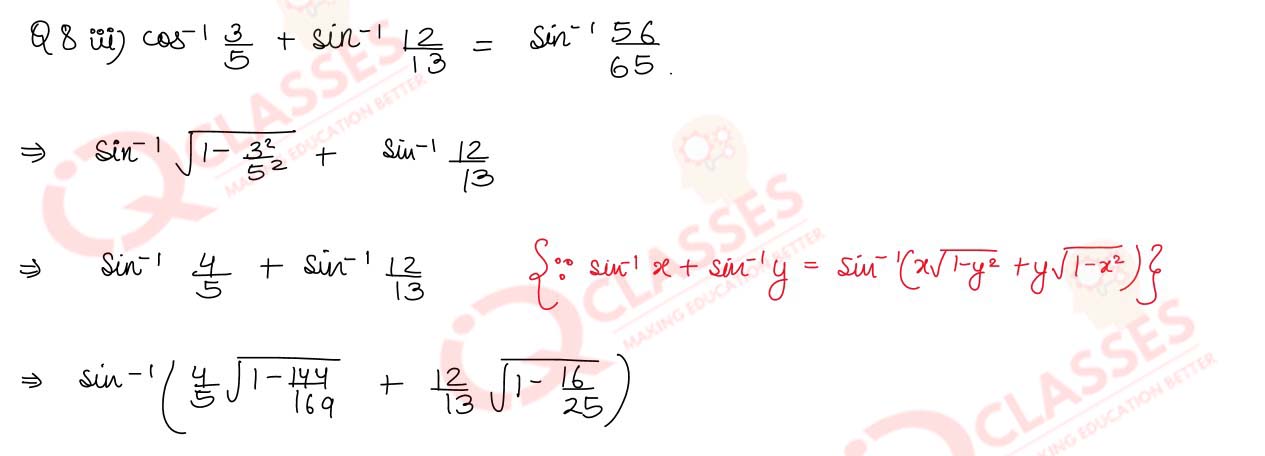 Q 8 iii) cos⁻¹ 3/5 + sin⁻¹ 12/13 = sin⁻¹ 56/65.
⇒ sin⁻¹ √(1 - 3²/5²) + sin⁻¹ 12/13
⇒ sin⁻¹ 4/5 + sin⁻¹ 12/13 {∵ sin⁻¹ x + sin⁻¹ y = sin⁻¹(x√(1-y²) + y√(1-x²))}
⇒ sin⁻¹(4/5 √(1 - 144/169) + 12/13 √(1 - 16/25))
IQ CLASSES
MAKING EDUCATION BETTER
IQ CLASSES
MAKING EDUCATION BETTER
IQ CLASSES
MAKING EDUCATION BETTER